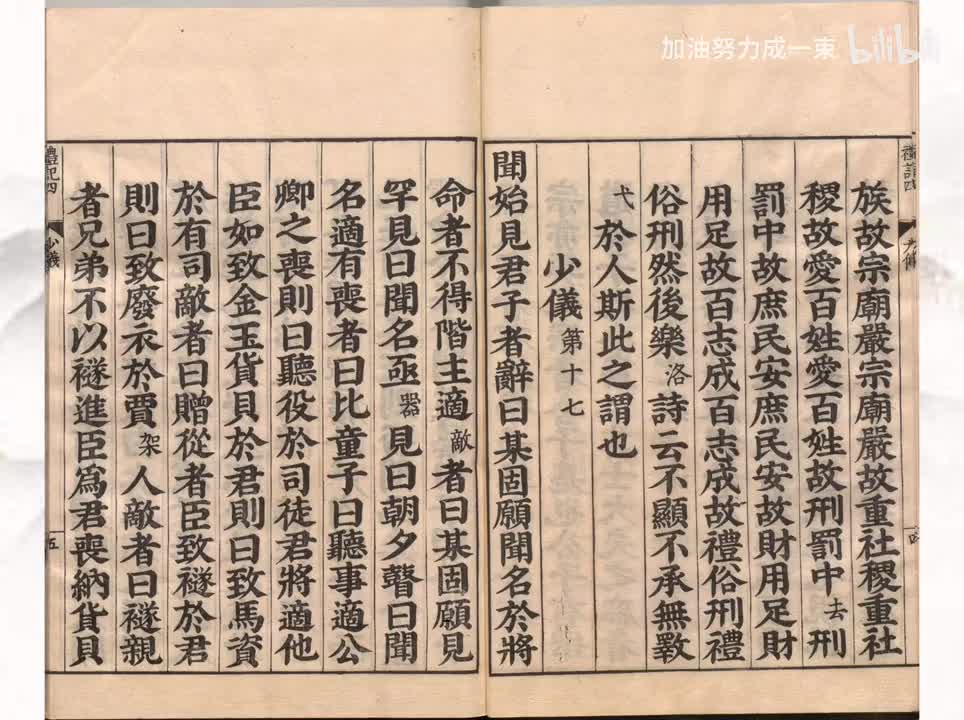 加油努力成一東 bilibili
族故宗廟嚴宗廟嚴故重社稷重社
稷故愛百姓愛百姓故刑罰中去刑
罰中故庶民安庶民安故財用足財
用足故百志成百志成故禮俗刑禮
俗刑然後樂洛詩云不顯不承無斁
弋於人斯此之謂也
少儀第十七
聞始見君子者辭曰某固願聞名於將
命者不得階主適敵者曰某固願見
罕見曰聞名亟器見曰朝夕瞽曰聞
名適有喪者曰比童子曰聽事適公
卿之喪則曰聽役於司徒君將適他
臣如致金玉貨貝於君則曰致馬資
於有司敵者曰贈從者臣致襚於君
則曰致廢衣於賈架人敵者曰襚親
者兄弟不以襚進臣爲君喪納貨貝
禮記四
少儀
五